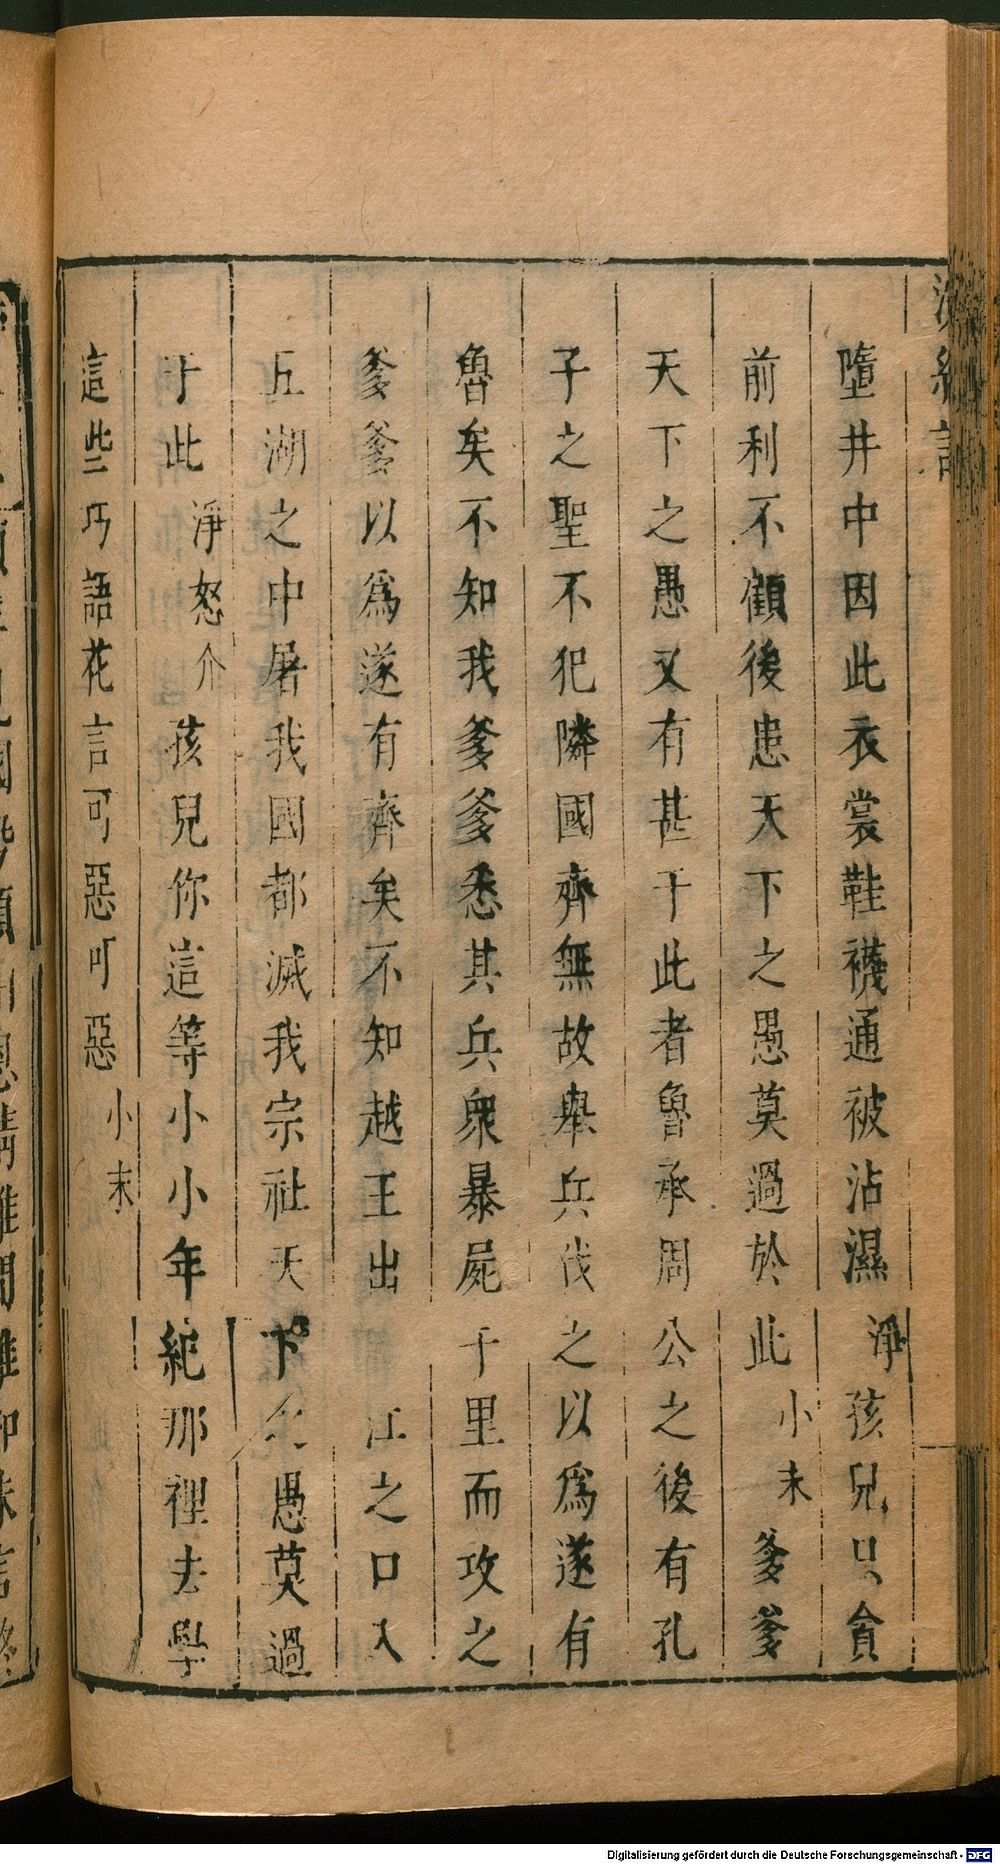 墮井中因此衣裳鞋襪通被沾濕 淨 孩兒只貪
前利不顧後患天下之愚莫過於此 小末 爹爹
天下之愚又有甚于此者魯承周公之後有孔
子之聖不犯隣國齊無故舉兵伐之以爲遂有
魯矣不知我爹爹悉其兵衆暴屍千里而攻之
爹爹以爲遂有齊矣不知越王出 江之口入
五湖之中屠我國都滅我宗社天下之愚莫過
于此 淨怒介 孩兒你這等小小年紀那裡去學
這些巧語花言可惡可惡 小末
Digitalisierung gefördert durch die Deutsche Forschungsgemeinschaft - DFG